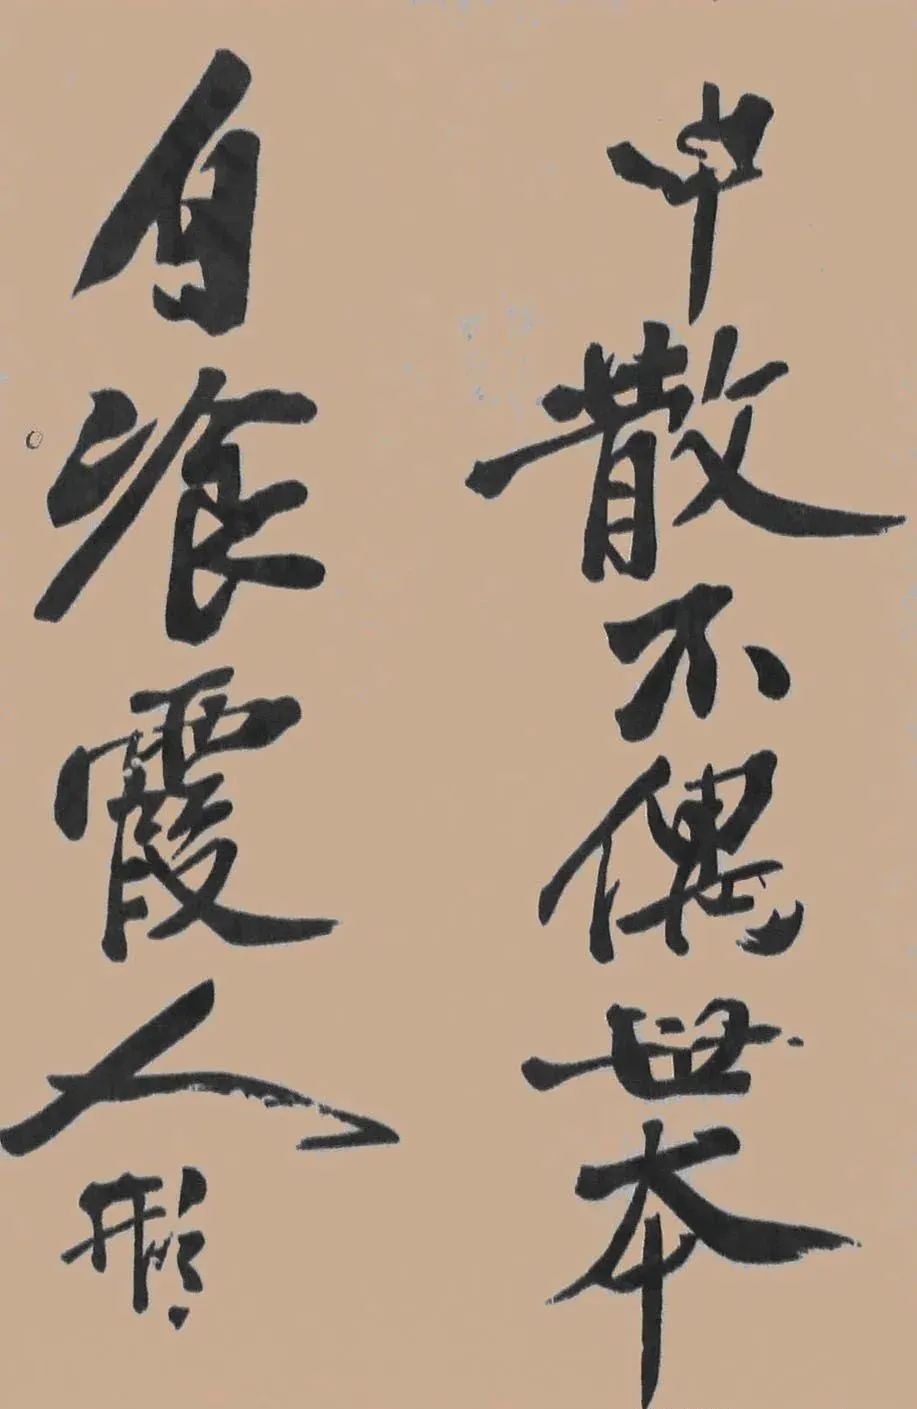 中散不偶世本
自飡霞人形